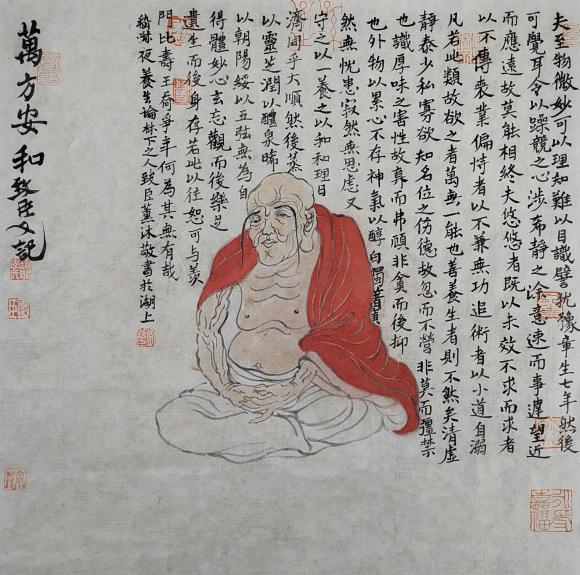 夫至物微妙可以理知難以目識譬犹豫章生七年然後
可覺耳今以躁競之心涉希静之塗意速而事遲望近
而應遠故莫能相終夫悠悠者既以未效不求而求者
以不專喪業偏恃者以不兼無功追術者以小道自溺
凡若此類故欲之者萬無一能也善養生者則不然矣清虛
静泰少私寡欲知名位之傷德故忽而不營非莫而彊禁
也識厚味之害性故棄而弗顧非貪而後抑
也外物以累心不存神氣以醇白獨著
然無忧患寂然無思慮又
守之以一養之以和和理日
濟同乎大順然後蒸
以靈芝潤以醴泉晞
以朝陽綏以五弦無為自
得體妙心玄忘觀而後樂足
遺生而後身存若此以往恕可与羨
門比壽王喬爭年何為其無有哉
嵇叔夜養生論林下之人致臣薰沐敬書於湖上
萬方安和致臣又記